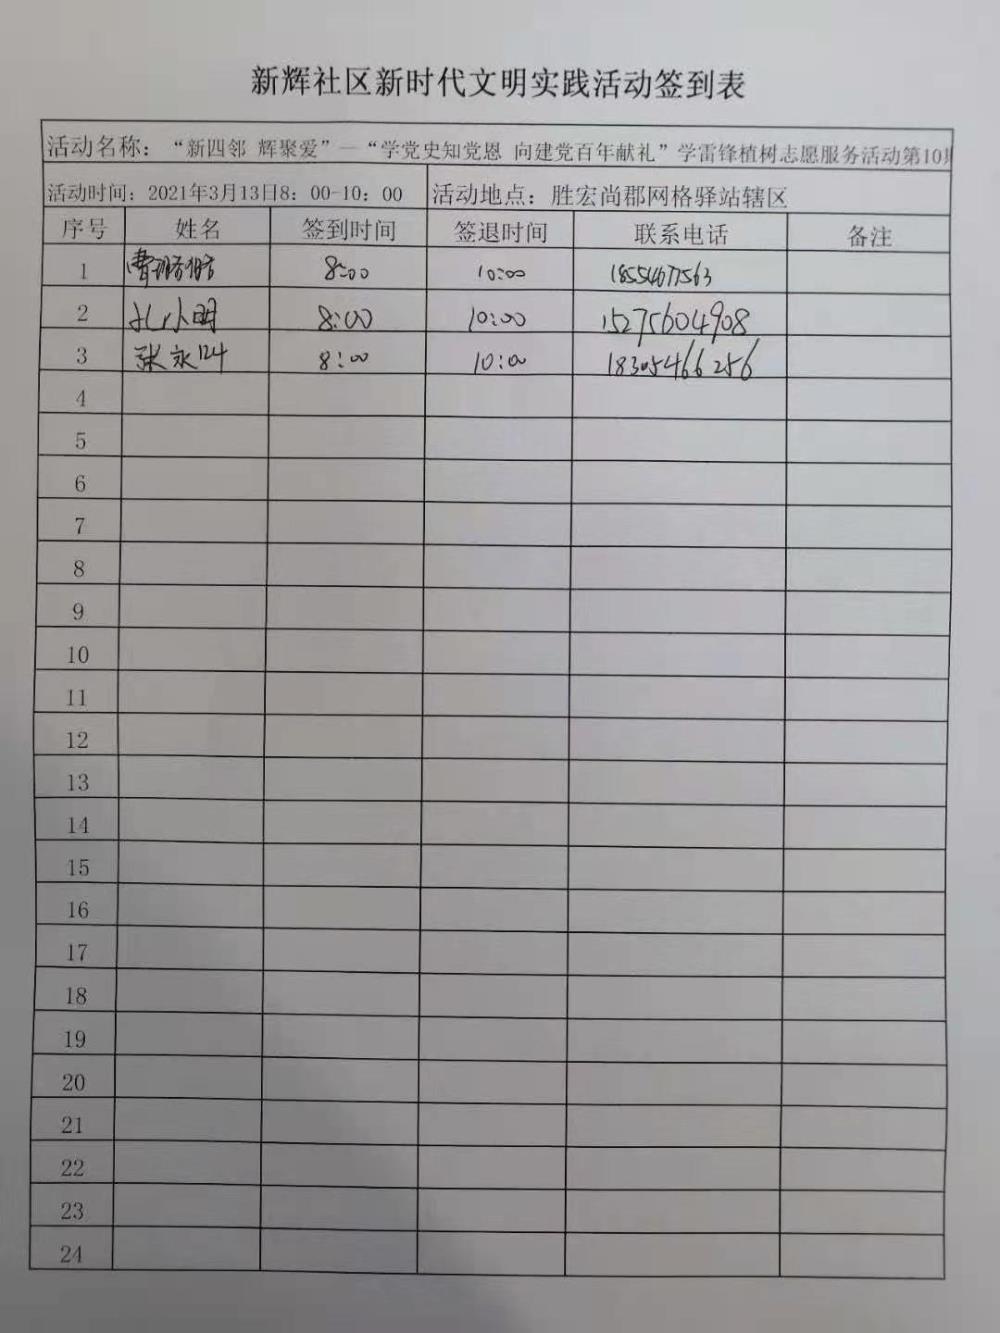 新辉社区新时代文明实践活动签到表
活动名称：“新四邻 辉聚爱”—“学党史知党恩 向建党百年献礼”学雷锋植树志愿服务活动第10期
活动时间：2021年3月13日8：00-10：00 活动地点：胜宏尚郡网格驿站辖区
序号 姓名 签到时间 签退时间 联系电话 备注
1 8:00 10:00 18554677563
2 孔小明 8:00 10:00 15275604908
3 张永 8:00 10:00 18305466256
4
5
6
7
8
9
10
11
12
13
14
15
16
17
18
19
20
21
22
23
24